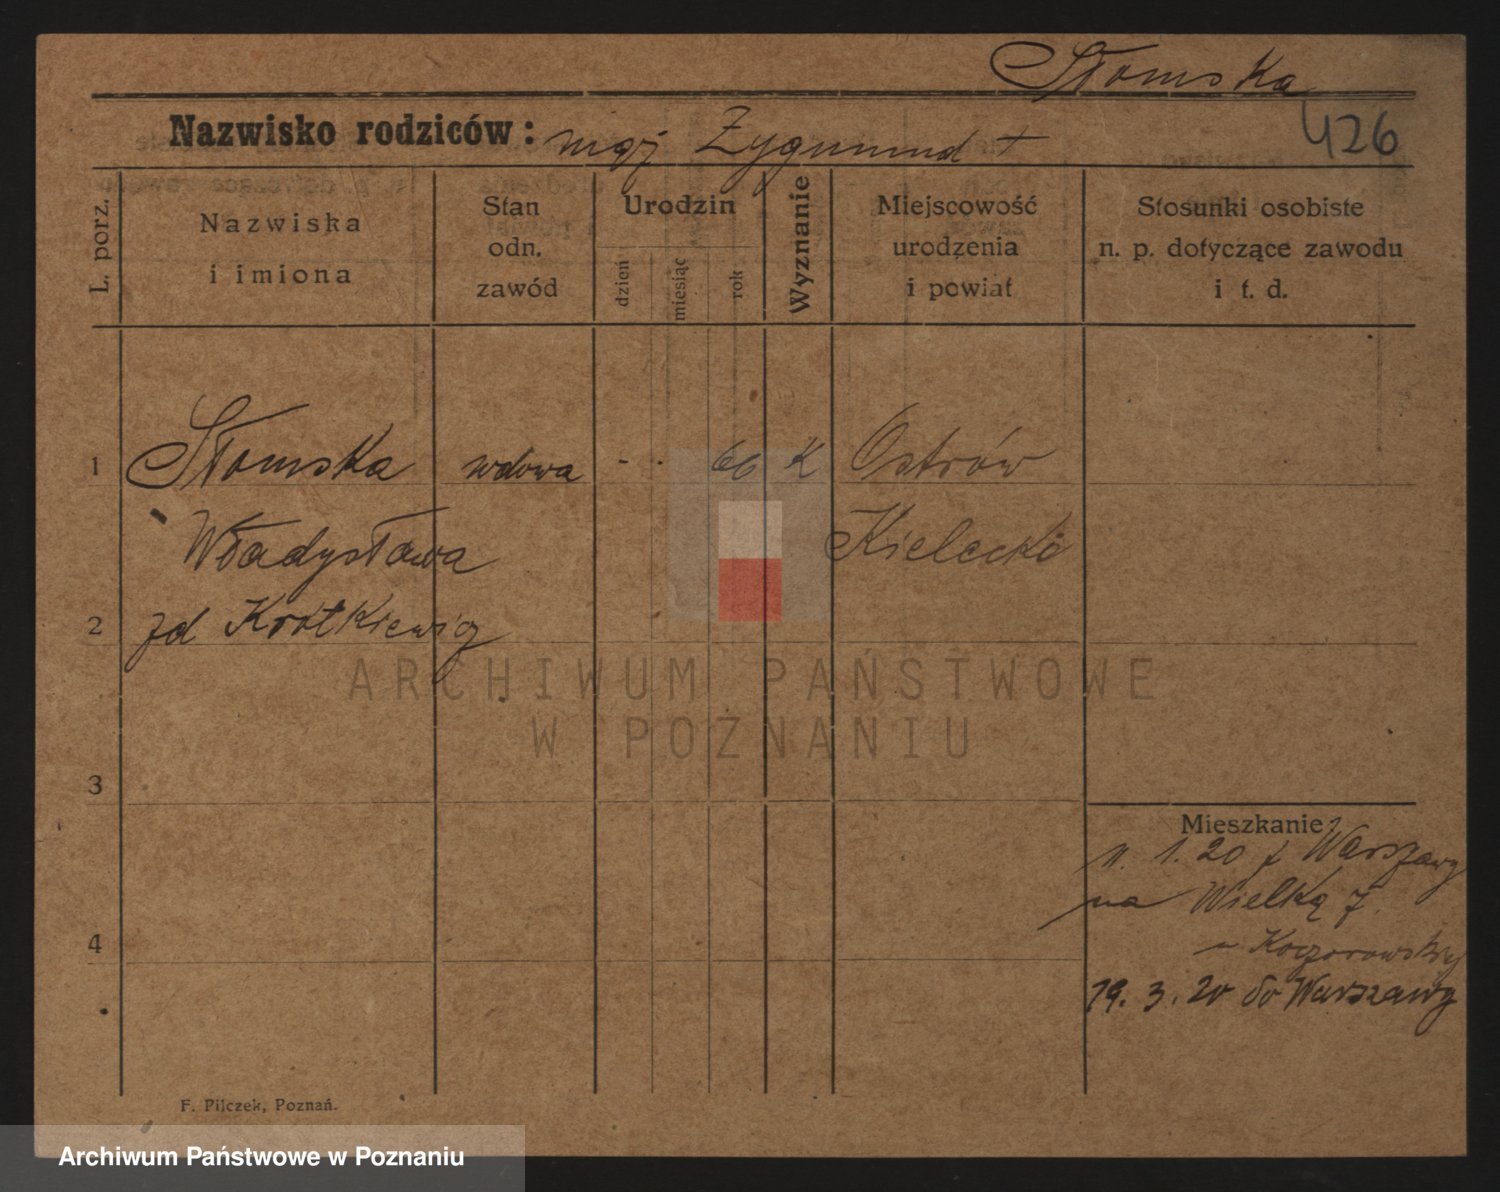 Słomska
Nazwisko rodziców: mąż Zygmund +
426
L. porz.
Nazwiska
i imiona
Stan
odn.
zawód
Urodzin
dzień
miesiąc
rok
Wyznanie
Miejscowość
urodzenia
i powiat
Stosunki osobiste
n. p. dotyczące zawodu
i t. d.
1 Słomska wdowa - - 66 K Ostrów
Władysława Kielecki
2 zd Krótkiewicz
3
Mieszkanie
11. 1. 20 z Warszawy
na Wielką 7.
u Koczorowskiej
4
19. 3. 20 do Warszawy
F. Pilczek, Poznań.
ARCHIWUM PAŃSTWOWE
W POZNANIU
Archiwum Państwowe w Poznaniu